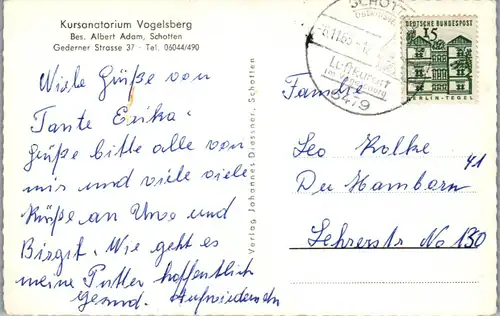 Kursanatorium Vogelsberg
Bes. Albert Adam, Schotten
Gederner Strasse 37 - Tel. 06044/490
Viele Grüße von
Tante Erika.
Grüße bitte alle von
mir und viele viele
Küße an Uwe und
Birgit. Wie geht es
meine Putter hoffentlich
Gesund. Aufwiedersehn
Verlag Johannes Diassner, Schotten
SCHOTT
Luftkurort
6479
DEUTSCHE BUNDESPOST
15
BERLIN-TEGEL
Familie
Leo Kolke
41
Du Hamborn
Lehrerstr No 130